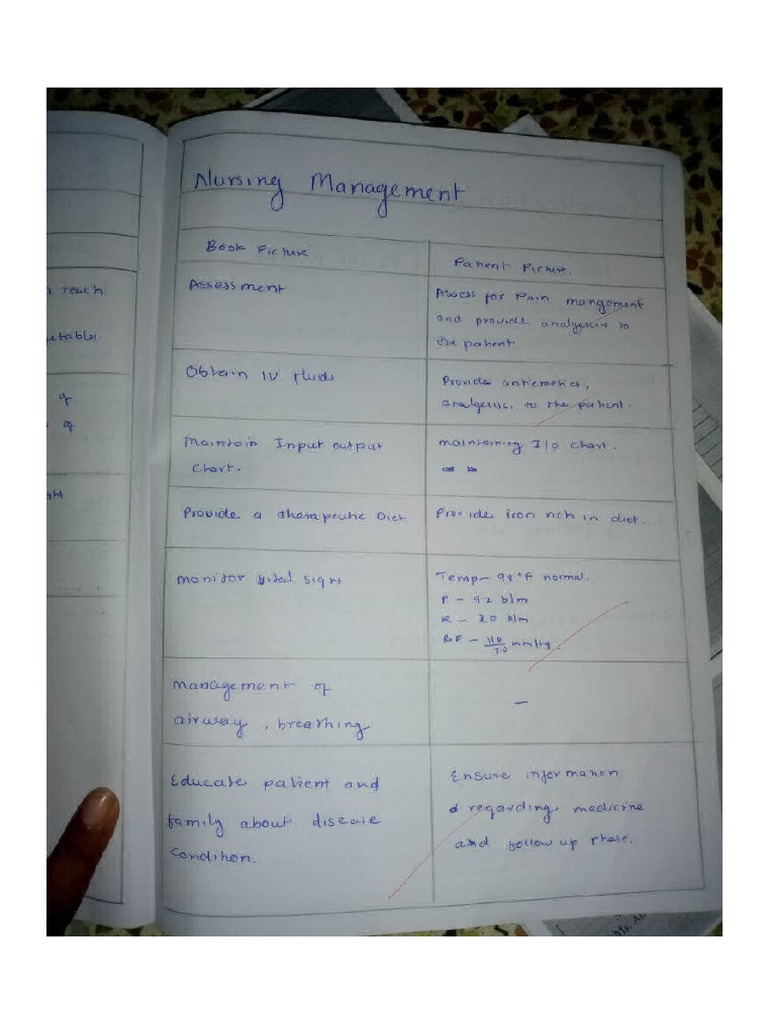 Nursing Management
Book Picture
Patient Picture.
Assessment
Assess for Pain mangement
and provide analgesics to
the patient
Obtain IV fluids
Provide antiemetics,
analgesics, to the patient.
Maintain Input output
chart.
maintaining I/O chart.
Provide a therapeutic Diet
Provide iron rich in diet.
monitor vital signs
Temp- 98°F normal.
P - 92 b/m
R - 20 b/m
BP - 110/70 mmHg.
management of
airway, breathing
-
Educate patient and
family about disease
condition.
Ensure information
regarding medicine
and follow up phase.
teach
etables
of
of